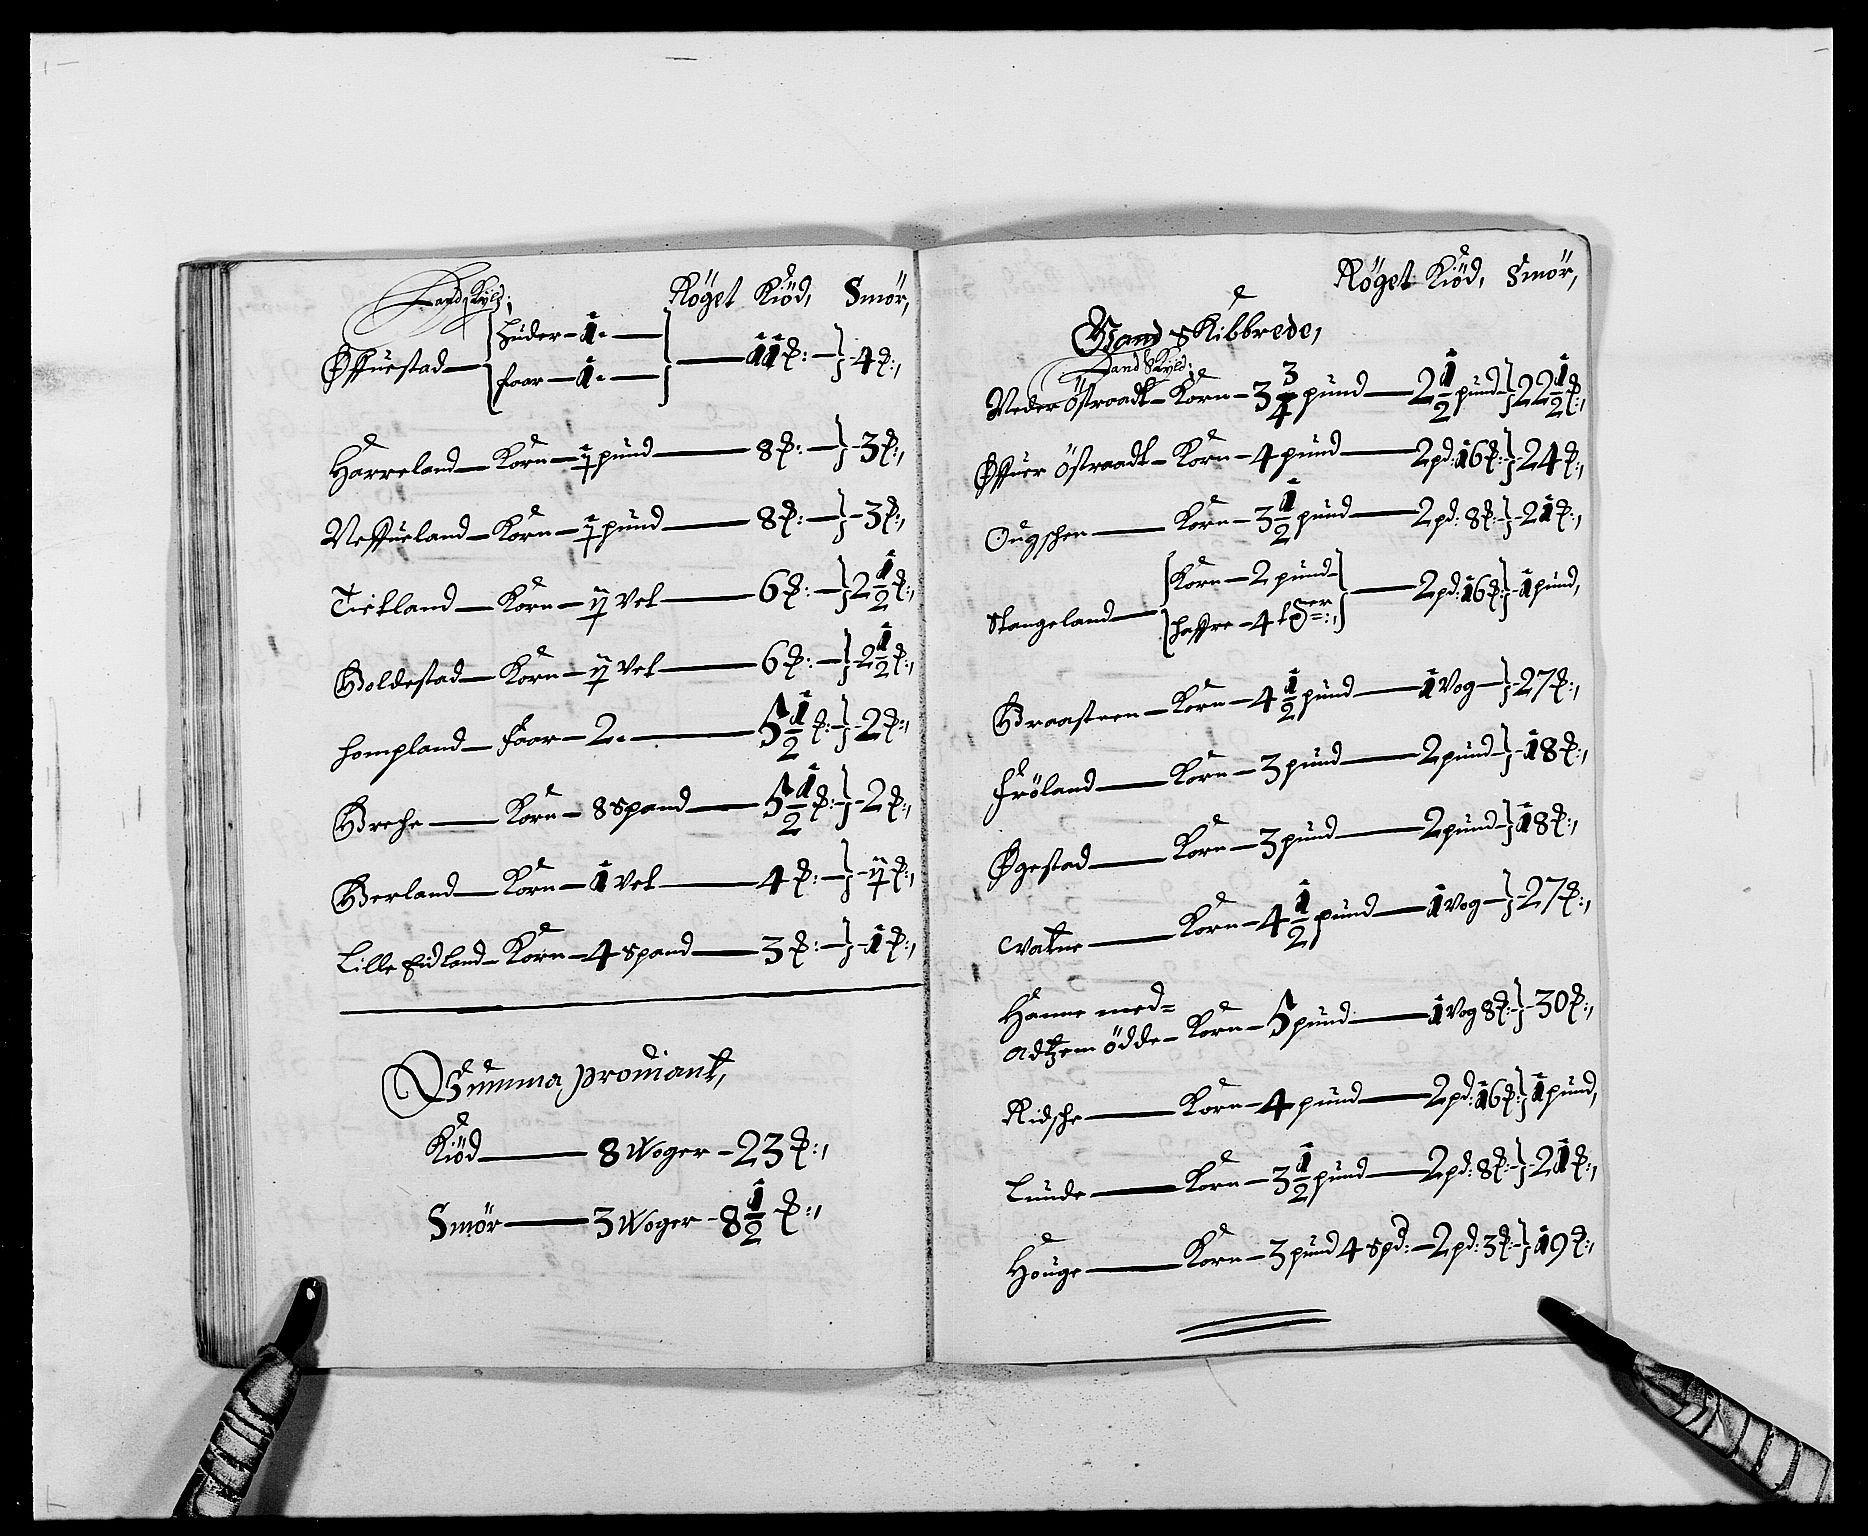 Land Skyld; Röget Kiöd, Smör,
Øffuestad — { huder — 1 — } — 11 ℔: — } 4 ℔:,
{ faar — 1 — }
Harreland — Korn — ½ pund — 8 ℔: — } 3 ℔:,
Neffueland — Korn — ½ pund — 8 ℔: — } 3 ℔:,
Tietland — Korn — 1½ Vet — 6 ℔: — } 2½ ℔:,
Goldestad — Korn — 1½ Vet — 6 ℔: — } 2½ ℔:,
hompland — faar — 2 — 5½ ℔: — } 2 ℔:,
Greche — Korn — 8 Spand — 5½ ℔: — } 2 ℔:,
Gierland — Korn — 1 Vet — 4 ℔: — } 1½ ℔:,
Lille Eidland — Korn — 4 Spand — 3 ℔: — } 1 ℔:,
Summa proviant,
Kiöd — 8 Woger — 23 ℔:,
Smör — 3 Woger — 8½ ℔:,
Röget Kiöd, Smör,
Gand Skibbrede,
Land Skyld;
Neder Östraadt — Korn — 3¾ pund — 2½ pund — } 22½ ℔:,
Øffuer Östraadt — Korn — 4 pund — 2 pd: 16 ℔: } 24 ℔:,
Ougschen — Korn — 3½ pund — 2 pd: 8 ℔: } 21 ℔:,
Stangeland — { Korn — 2 pund } — 2 pd: 16 ℔: } 1 pund,
{ haffre — 4 tDer:, }
Graasteen — Korn — 4½ pund — 1 Vog — } 27 ℔:,
Fröland — Korn — 3 pund — 2 pund — } 18 ℔:,
Øgestad — Korn — 3 pund — 2 pund — } 18 ℔:,
Watne — Korn — 4½ pund — 1 Vog — } 27 ℔:,
Hanne med=
Adtzem ödde — Korn — 5 pund — 1 Vog 8 ℔: } 30 ℔:,
Ridsche — Korn — 4 pund — 2 pd: 16 ℔: } 1 pund,
Lunde — Korn — 3½ pund — 2 pd: 8 ℔: } 21 ℔:,
Houge — Korn — 3 pund 4 spd: — 2 pd: 3 ℔: } 19 ℔:,